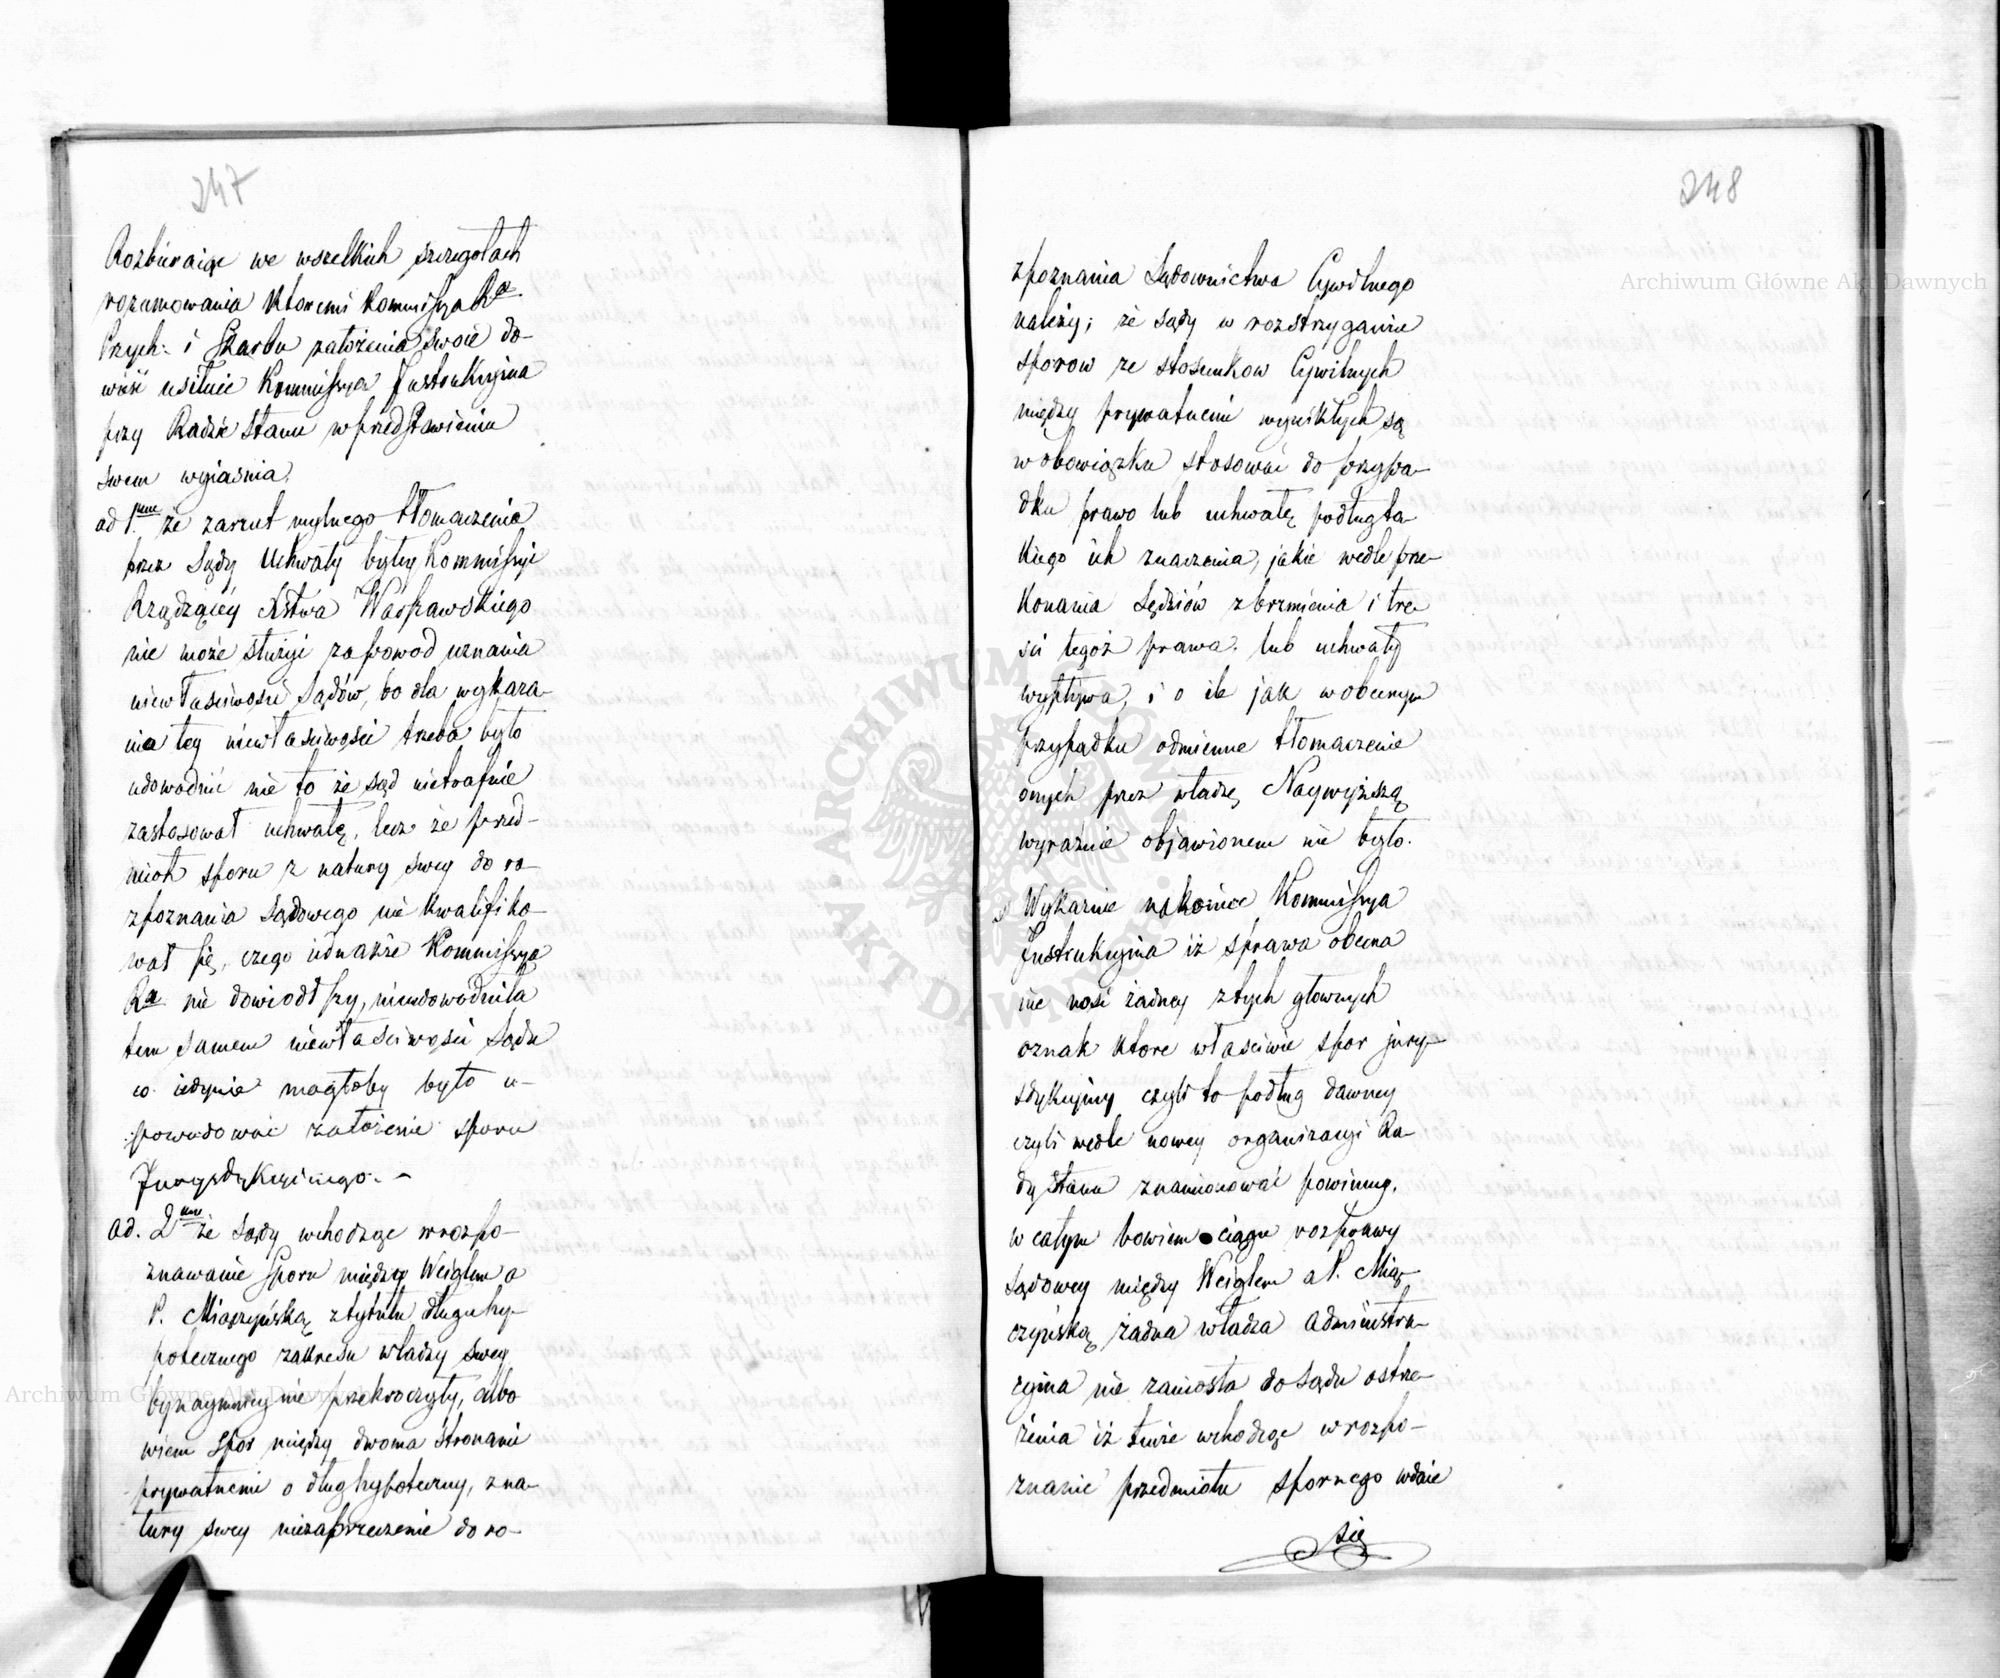 247
Rozbieraiąc we wszelkich szczegołach
rozumowania ktoremi Kommissya Ra.
Przych: i Skarbu założenia swoie do-
wieść usiłuie Kommissya Instrukcyina
przy Radzie Stanu w przedstawieniu
swem wyiaśnia.
ad 1.mum że zarzut mylnego tłomaczenia
przez Sądy Uchwały byłey Kommissyi
Rządzącey Xstwa Warszawskiego
nie może służyć za powod uznania
niewłaściwości Sądów, bo dla wykaza-
nia tey niewłaściwości trzeba było
udowodnić nie to że sąd nietrafnie
zastosował uchwałę, lecz że przed-
miot sporu z natury swey do ro-
zpoznania Sądowego nie kwalifiko-
wał się, czego iednakże Kommissya
Ra nie dowiodłszy, nieudowodniła
tem samem niewłaściwości Sądu
co iedynie mogłoby było u-
powodować założenie sporu
Jurysdykcyinego. -
ad. 2um że Sądy wchodząc w rozpo-
znawanie Sporu między Weiglem a
P. Miączyńską z tytułu długu hy-
potecznego zakresu władzy swey
bynaymniey nie przekroczyły, albo
wiem spor między dwoma stronami
prywatnemi o dług hypoteczny, z na-
tury swey niezaprzeczenie do ro-
248
zpoznania Sądownictwa Cywilnego
należy; że sądy w rozstrzyganiu
sporow ze stosunkow Cywilnych
między prywatnemi wynikłych są
w obowiązku stosować do przypa-
dku prawo lub uchwałę podług ta-
kiego ich znaczenia, jakie wedle prze-
konania Sędziów z brzmienia i tre-
ści tegoż prawa lub uchwały
wypływa, i o ile jak w obecnym
przypadku odmienne tłomaczenie
onych przez władzę Naywyższą
wyraźnie objawionem nie było.
Wykaznie nakoniec Kommissya
Instrukcyina iż sprawa obecna
nie nosi żadney z tych głownych
oznak ktore właściwie spor jury-
sdykcyiny czyli to podług dawney
czyli wedle nowey organizacyi Ra-
dy Stanu znamionować powinny,
w całym bowiem ciągu rozprawy
Sądowey między Weiglem a P. Mią-
czyńską żadna władza administra-
cyina nie zaniosła do Sądu ostrze-
żenia iż tenże wchodząc w rozpo-
znanie przedmiotu spornego wdaie
się